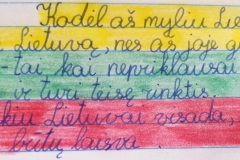 Kodėl aš myliu Lie
Lietuvą, nes aš joje g
tai kai nepriklausai
ir turi teisę rinktis.
kiu Lietuvai visada,
būtų laisva.